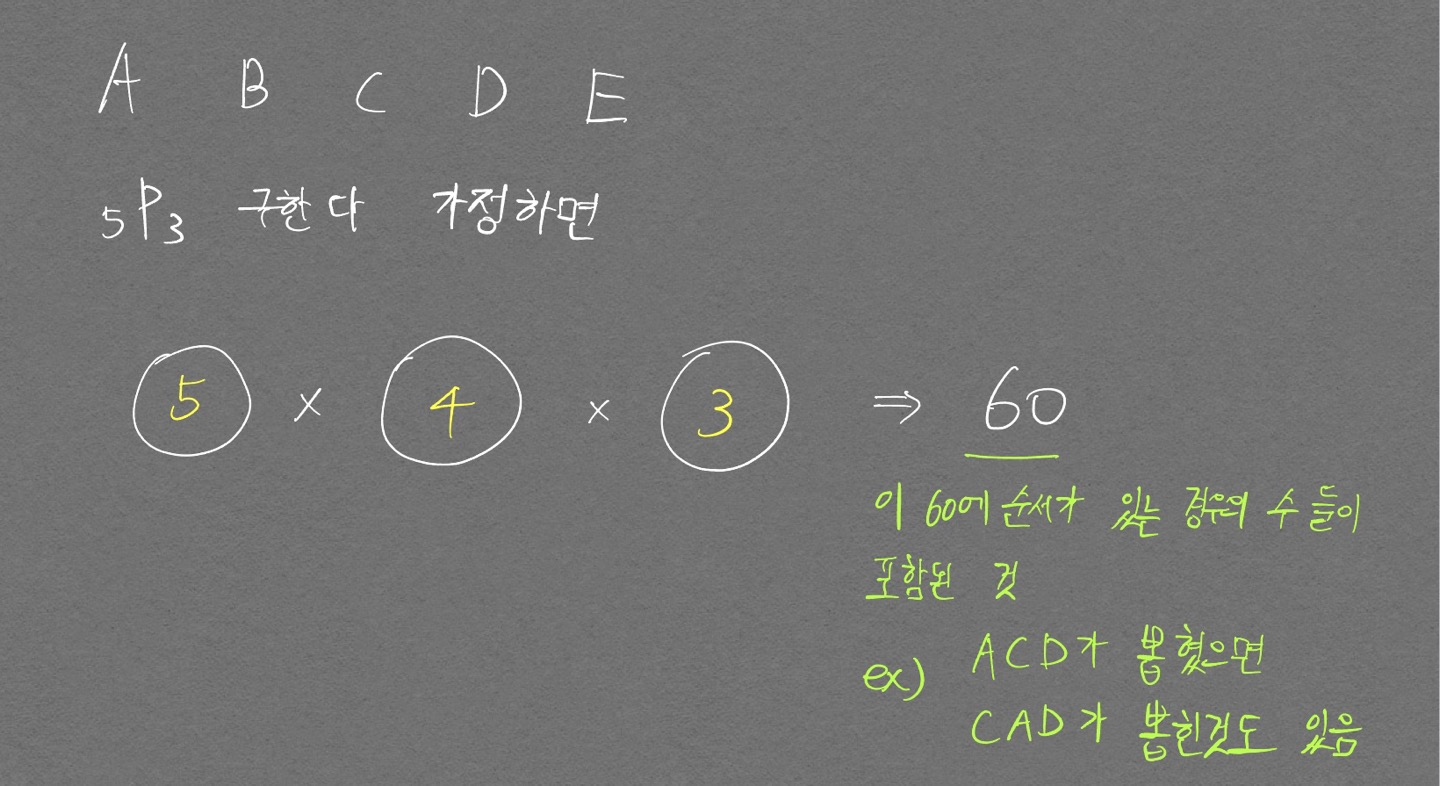 A B C D E
5P3 구한다 가정하면
5 x 4 x 3 ⇒ 60
이 60에 순서가 있는 경우의 수 들이
포함된 것
ex) ACD가 뽑혔으면
CAD가 뽑힌것도 있음